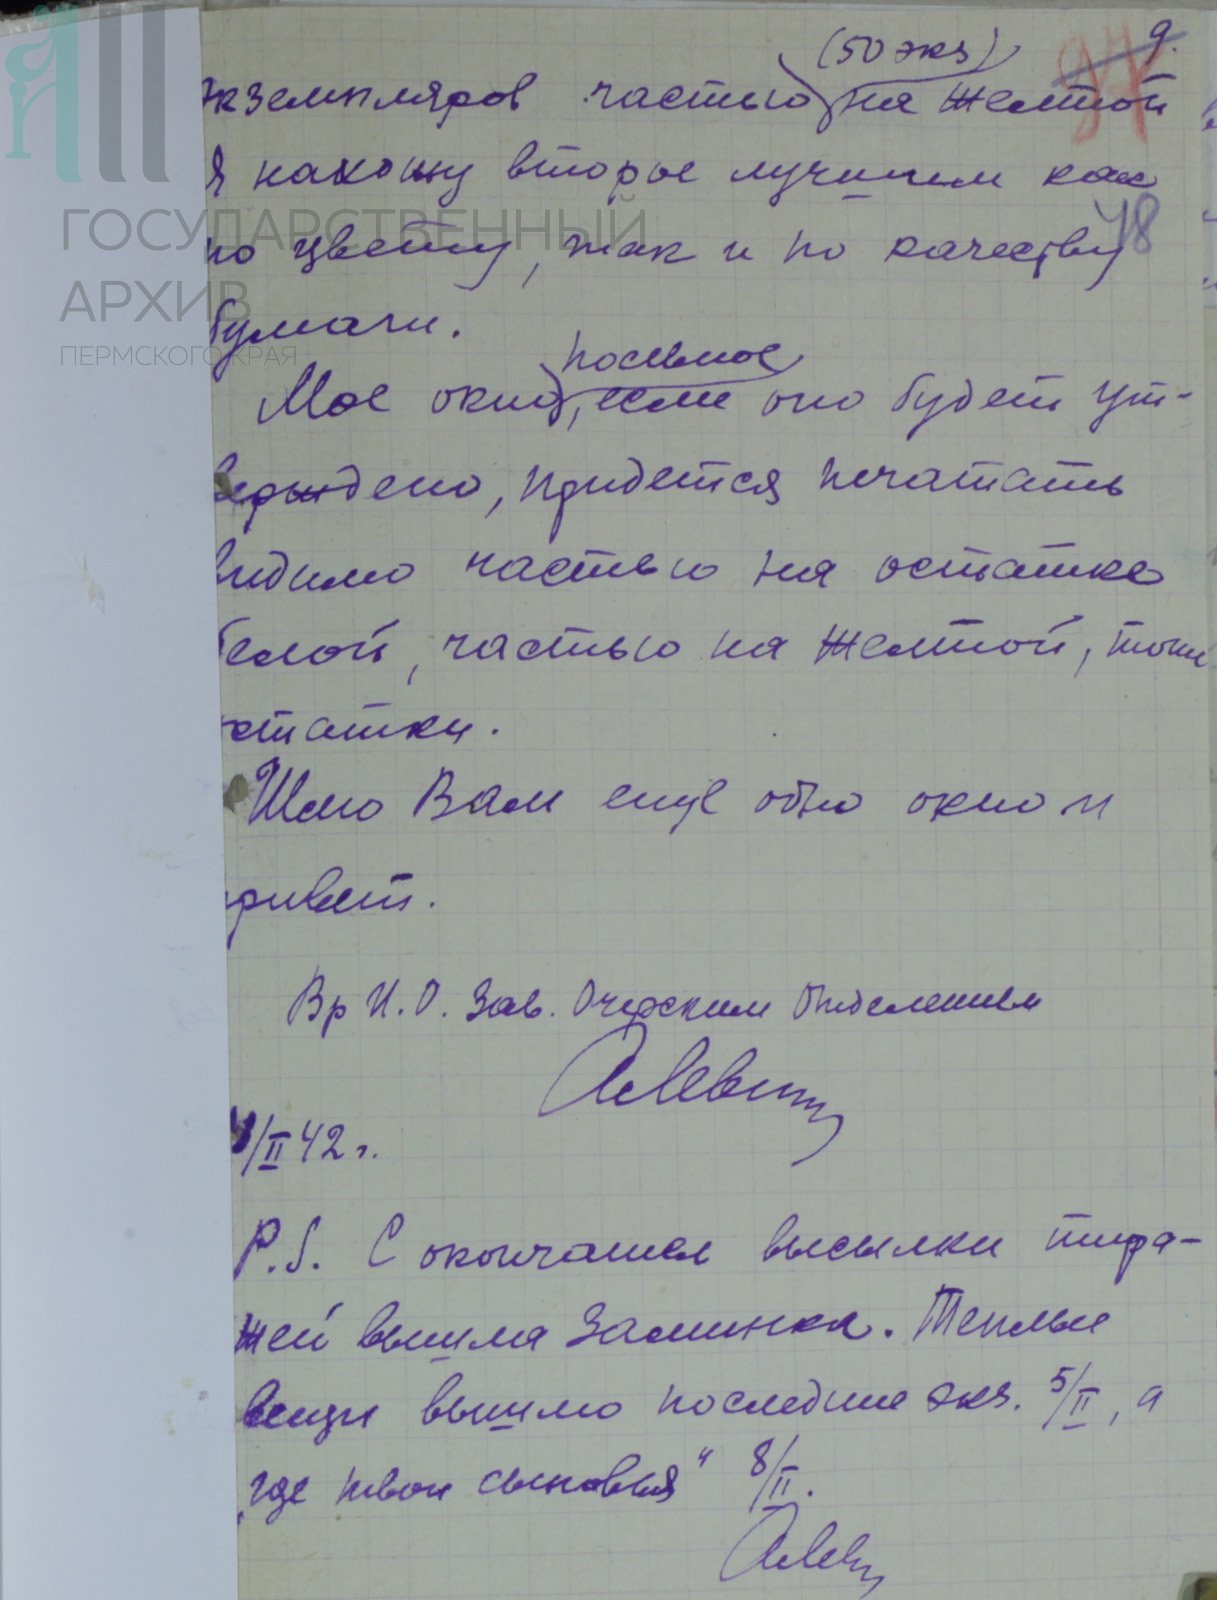 (50 экз) 9.
экземпляров частью на желтой
Я нахожу вторые лучшим как
48
по цвету, так и по качеству
бумаги.
посевное
Мое окно, если оно будет ут-
верждено, придется печатать
видимо частью на остатке
белой, частью на желтой, тоже
остатки.
Шлю Вам еще одно окно и
привет.
Вр И.О. Зав. Очерским Отделением
АЛевин
/II 42 г.
P.S. С окончанием высылки тира-
жей вышла заминка. Теплые
вещи вышлю последние экз. 5/II, а
„где твои сыновья" 8/II.
АЛеви
ГОСУДАРСТВЕННЫЙ
АРХИВ
ПЕРМСКОГО КРАЯ